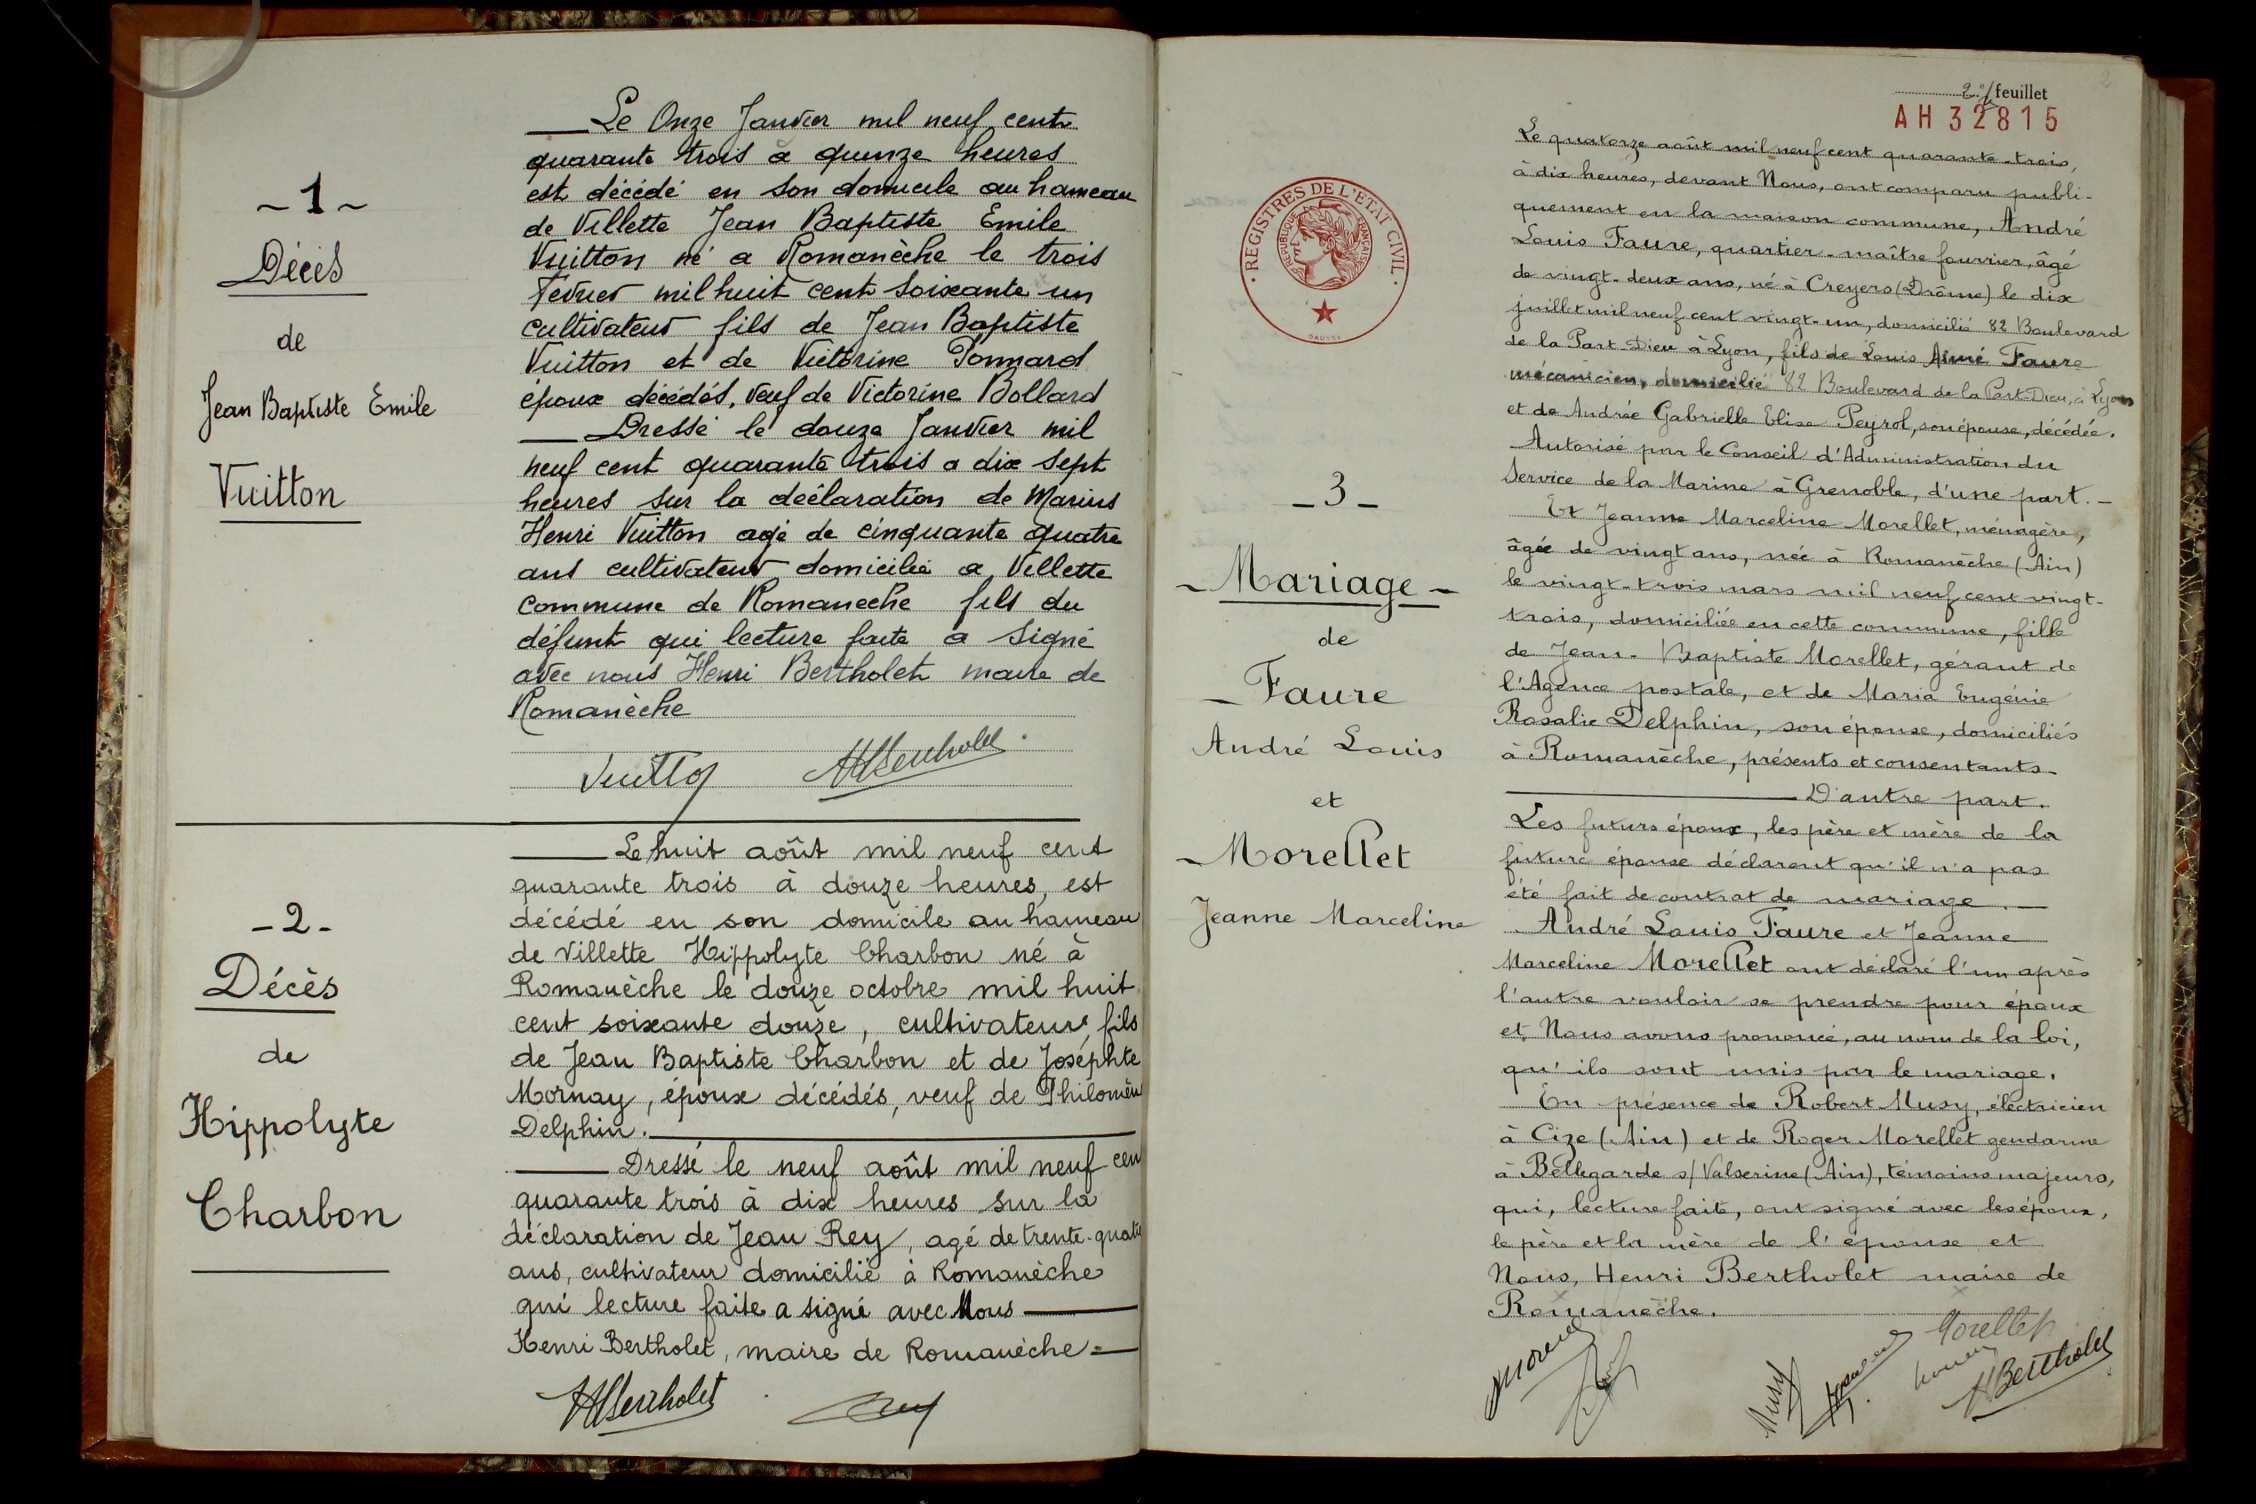 ~ 1 ~
Décès
de
Jean Baptiste Emile
Vuitton
Le Onze Janvier mil neuf cent
quarante trois a quinze heures
est décédé en son domicile au hameau
de Villette Jean Baptiste Emile
Vuitton né a Romanèche le trois
Fevrier mil huit cent soixante un
cultivateur fils de Jean Baptiste
Vuitton et de Victorine Ponnard
époux décédés, veuf de Victorine Bollard
Dressé le douze Janvier mil
neuf cent quarante trois a dix sept
heures sur la déclaration de Marius
Henri Vuitton agé de cinquante quatre
ans cultivateur domicilié a Villette
commune de Romaneche fils du
défunt qui lecture faite a signé
avec nous Henri Bertholet maire de
Romanèche
Vuitton HBertholet
- 2 -
Décès
de
Hippolyte
Charbon
Le huit août mil neuf cent
quarante trois à douze heures, est
décédé en son domicile au hameau
de Villette Hippolyte Charbon né à
Romanèche le douze octobre mil huit
cent soixante douze, cultivateur fils
de Jean Baptiste Charbon et de Joséphte
Mornay, époux décédés, veuf de Philomèn
Delphin.
Dressé le neuf août mil neuf cen
quarante trois à dix heures sur la
déclaration de Jean Rey, agé de trente-quatr
ans, cultivateur domicilié à Romanèche
qui lecture faite a signé avec Nous
Henri Bertholet, maire de Romanèche =
HBertholet Rey
2e feuillet
AH 32815
2
REGISTRES DE L'ETAT CIVIL
REPUBLIQUE FRANÇAISE
- 3 -
- Mariage -
de
- Faure
André Louis
et
- Morellet
Jeanne Marceline
Le quatorze août mil neuf cent quarante-trois,
à dix heures, devant Nous, ont comparu publi-
quement en la maison commune, André
Louis Faure, quartier-maître fourrier, âgé
de vingt-deux ans, né à Creyers (Drôme) le dix
juillet mil neuf cent vingt-un, domicilié 82 Boulevard
de la Part Dieu à Lyon, fils de Louis Aimé Faure
mécanicien, domicilié 82 Boulevard de la Part-Dieu, à Lyon
et de Andrée Gabrielle Elise Peyrol, son épouse, décédée.
Autorisé par le Conseil d'Administration du
Service de la Marine à Grenoble, d'une part. -
Et Jeanne Marceline Morellet, ménagère,
âgée de vingt ans, née à Romanèche (Ain)
le vingt-trois mars mil neuf cent vingt-
trois, domiciliée en cette commune, fille
de Jean-Baptiste Morellet, gérant de
l'Agence postale, et de Maria Eugénie
Rosalie Delphin, son épouse, domiciliés
à Romanèche, présents et consentants -
D'autre part.
Les futurs époux, les père et mère de la
future épouse déclarent qu'il n'a pas
été fait de contrat de mariage. -
André Louis Faure et Jeanne
Marceline Morellet ont déclaré l'un après
l'autre vouloir se prendre pour époux
et Nous avons prononcé, au nom de la loi,
qu'ils sont unis par le mariage.
En présence de Robert Musy, électricien
à Cize (Ain) et de Roger Morellet gendarme
à Bellegarde s/ Valserine (Ain), témoins majeurs,
qui, lecture faite, ont signé avec les époux,
le père et la mère de l'épouse et
Nous, Henri Bertholet maire de
Romanèche.
Musy Morellet HBertholet